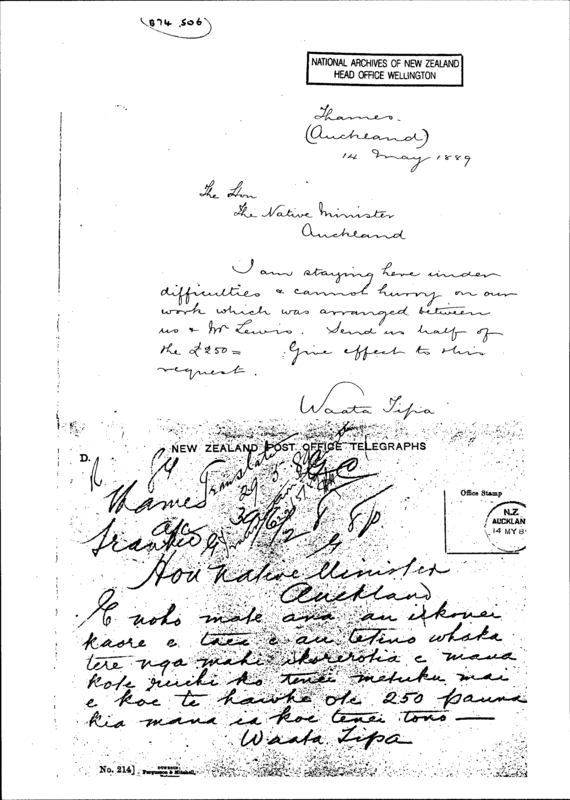 (874.506)
NATIONAL ARCHIVES OF NEW ZEALAND
HEAD OFFICE WELLINGTON
Thames.
(Auckland)
14 May 1889
The Hon
The Native Minister
Auckland
I am staying here under
difficulties & cannot hurry on our
work which was arranged between
us & Mr Lewis. Send us half of
the £250= Give effect to this
request.
Waata Tipa
NEW ZEALAND POST OFFICE TELEGRAPHS
D.
84
Translate
Thames
Office Stamp
N.Z.
AUCKLAN
14 MY 8
Hon Native Minister
Auckland
E noho mate ana au ikonei
kaore e taea e au tetino whaka
tere nga mahi ikorerotia e maua
kote ruihi ko tenei metuku mai
e koe te hawhe ote 250 pauna
kia mana ia koe tenei tono —
Waata Tipa
No. 214]
Ferguson & Mitchell,